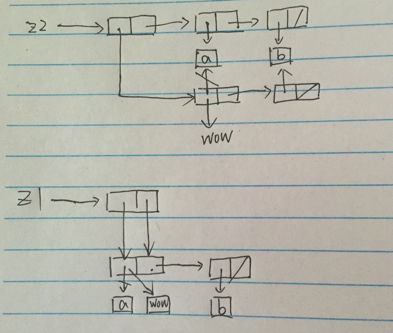 z2
a b
wow
z1
a wow b